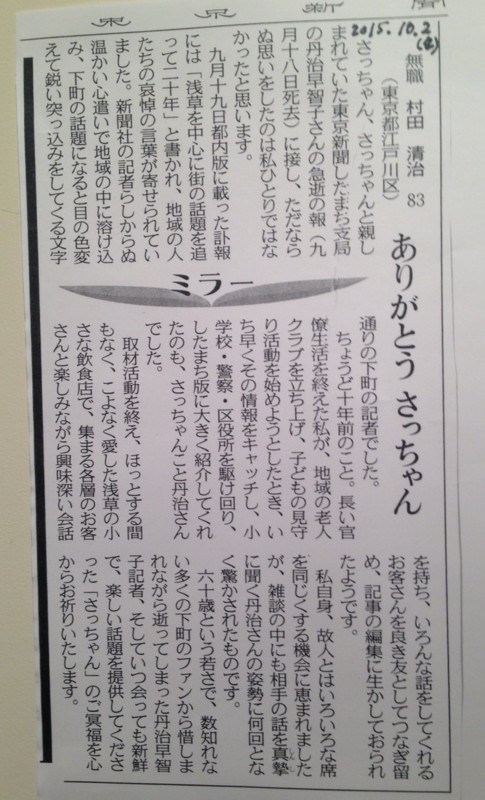 東京新聞
2015.10.2
(金)
ありがとう さっちゃん
無職 村田 清治 83
(東京都江戸川区)
さっちゃん、さっちゃんと親し
まれていた東京新聞したまち支局
の丹治早智子さんの急逝の報(九
月十八日死去)に接し、ただなら
ぬ思いをしたのは私ひとりではな
かったと思います。
九月十九日都内版に載った訃報
には「浅草を中心に街の話題を追
って二十年」と書かれ、地域の人
たちの哀悼の言葉が寄せられてい
ました。新聞社の記者らしからぬ
温かい心遣いで地域の中に溶け込
み、下町の話題になると目の色変
えて鋭い突っ込みをしてくる文字
ミラー
通りの下町の記者でした。
ちょうど十年前のこと。長い官
僚生活を終えた私が、地域の老人
クラブを立ち上げ、子どもの見守
り活動を始めようとしたとき、い
ち早くその情報をキャッチし、小
学校・警察・区役所を駆け回り、
したまち版に大きく紹介してくれ
たのも、さっちゃんこと丹治さん
でした。
取材活動を終え、ほっとする間
もなく、こよなく愛した浅草の小
さな飲食店で、集まる各層のお客
さんと楽しみながら興味深い会話
を持ち、いろんな話をしてくれる
お客さんを良き友としてつなぎ留
め、記事の編集に生かしておられ
たようです。
私自身、故人とはいろいろな席
を同じくする機会に恵まれました
が、雑談の中にも相手の話を真摯
に聞く丹治さんの姿勢に何回とな
く驚かされたものです。
六十歳という若さで、数知れな
い多くの下町のファンから惜しま
れながら逝ってしまった丹治早智
子記者、そしていつ会っても新鮮
で、楽しい話題を提供してくださ
った「さっちゃん」のご冥福を心
からお祈りいたします。